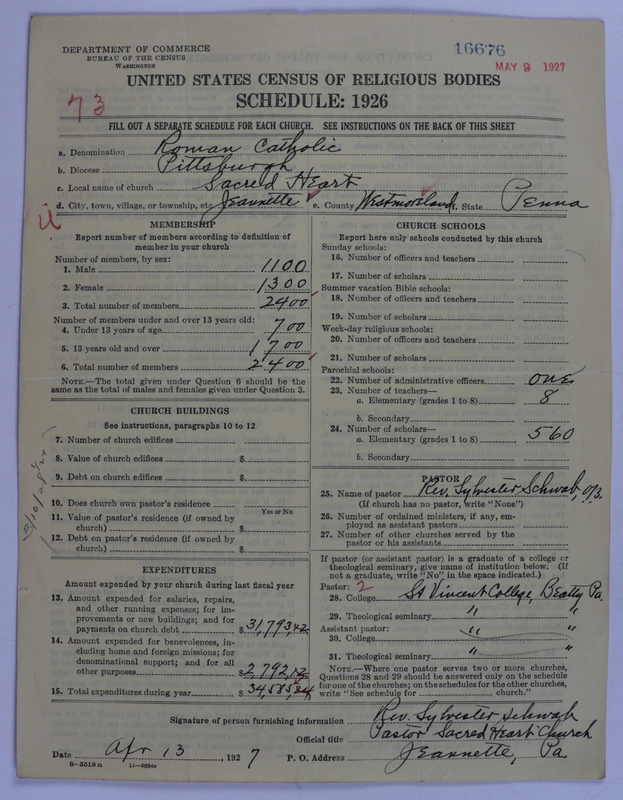 DEPARTMENT OF COMMERCE
BUREAU OF THE CENSUS
WASHINGTON
16676
MAY 9 1927
UNITED STATES CENSUS OF RELIGIOUS BODIES
SCHEDULE: 1926
73
FILL OUT A SEPARATE SCHEDULE FOR EACH CHURCH. SEE INSTRUCTIONS ON THE BACK OF THIS SHEET
a. Denomination Roman Catholic
b. Diocese Pittsburgh
c. Local name of church Sacred Heart
d. City, town, village, or township, etc. Jeannette e. County Westmoreland f. State Penna
MEMBERSHIP
Report number of members according to definition of
member in your church
Number of members, by sex:
1. Male 1100
2. Female 1300
3. Total number of members 2400
Number of members under and over 13 years old:
4. Under 13 years of age 700
5. 13 years old and over 1700
6. Total number of members 2400
NOTE.—The total given under Question 6 should be the
same as the total of males and females given under Question 3.
CHURCH BUILDINGS
See instructions, paragraphs 10 to 12
7. Number of church edifices
8. Value of church edifices $
9. Debt on church edifices $
10. Does church own pastor's residence
Yes or No
11. Value of pastor's residence (if owned by
church) $
12. Debt on pastor's residence (if owned by
church) $
EXPENDITURES
Amount expended by your church during last fiscal year
13. Amount expended for salaries, repairs,
and other running expenses; for im-
provements or new buildings; and for
payments on church debt $31,793,42
14. Amount expended for benevolences, in-
cluding home and foreign missions; for
denominational support; and for all
other purposes $2,792,12
15. Total expenditures during year $34,585,54
CHURCH SCHOOLS
Report here only schools conducted by this church
Sunday schools:
16. Number of officers and teachers
17. Number of scholars
Summer vacation Bible schools:
18. Number of officers and teachers
19. Number of scholars
Week-day religious schools:
20. Number of officers and teachers
21. Number of scholars
Parochial schools:
22. Number of administrative officers one
23. Number of teachers—
a. Elementary (grades 1 to 8) 8
b. Secondary
24. Number of scholars—
a. Elementary (grades 1 to 8) 560
b. Secondary
PASTOR
25. Name of pastor Rev. Sylvester Schwab,
(If church has no pastor, write "None")
26. Number of ordained ministers, if any, em-
ployed as assistant pastors
27. Number of other churches served by the
pastor or his assistants
If pastor (or assistant pastor) is a graduate of a college or
theological seminary, give name of institution below. (If
not a graduate, write "No" in the space indicated.)
Pastor: 2
28. College St Vincent College, Beatty Pa
29. Theological seminary " "
Assistant pastor:
30. College " "
31. Theological seminary " "
NOTE.—Where one pastor serves two or more churches,
Questions 28 and 29 should be answered only on the schedule
for one of the churches; on the schedules for the other churches,
write "See schedule for church."
Signature of person furnishing information Rev. Sylvester Schwab
Official title Pastor Sacred Heart Church
Date Apr 13, 1927 P. O. Address Jeannette, Pa
8-5518a